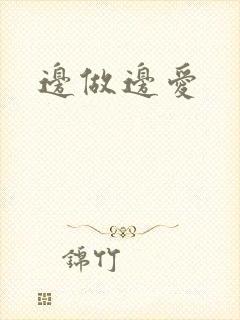 邊做邊愛
錦竹